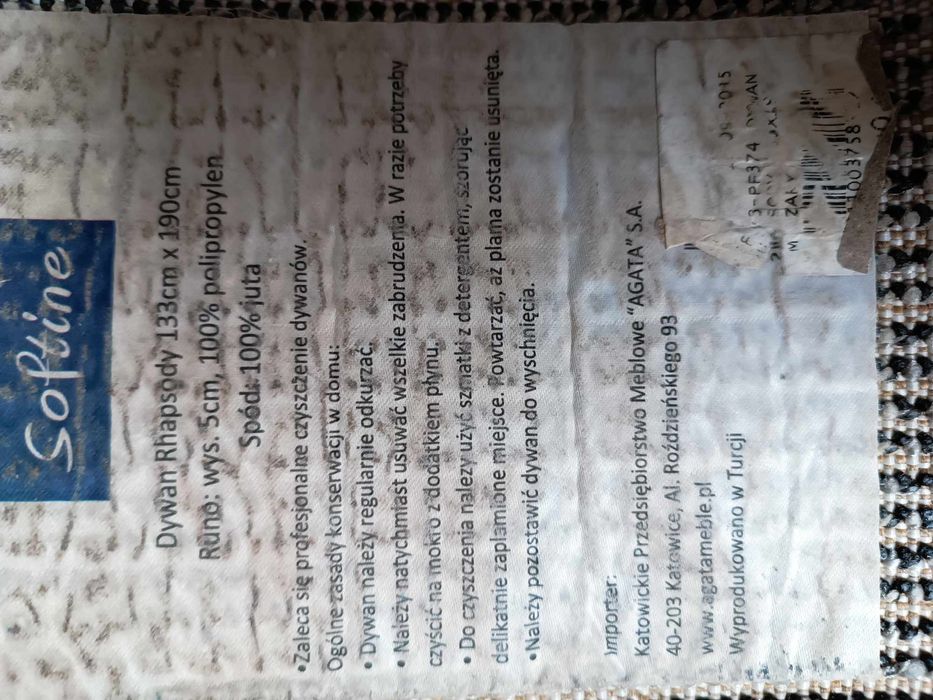 Softine
Dywan Rhapsody 133cm x 190cm
Runo: wys. 5cm, 100% polipropylen
Spód: 100% juta
•Zaleca się profesjonalne czyszczenie dywanów.
Ogolne zasady konserwacji w domu:
• Dywan należy regularnie odkurzać.
• Należy natychmiast usuwać wszelkie zabrudzenia. W razie potrzeby
czyścić na mokro z dodatkiem płynu.
• Do czyszczenia należy użyć szmatki z detergentem, szorując
delikatnie zaplamione miejsce. Powtarzać, aż plama zostanie usunięta.
•Należy pozostawić dywan do wyschnięcia.
Importer:
Katowickie Przedsiębiorstwo Meblowe “AGATA” S.A.
40-203 Katowice, Al. Roździeńskiego 93
www.agatameble.pl
Wyprodukowano w Turcji